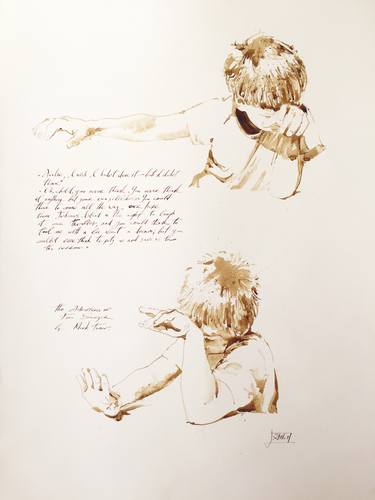 - Auntie, I wish I hadn't done it - but I didn't
think -
- Oh, child, you never think. You never think
of anything but your own selfishness. You could
think to come all the way over here
from Island in the night to laugh
at our troubles, and you could think to
fool me with a lie about a dream; but you
couldn't ever think to pity us and save us from
The Adventures of
Tom Sawyer
by Mark Twain